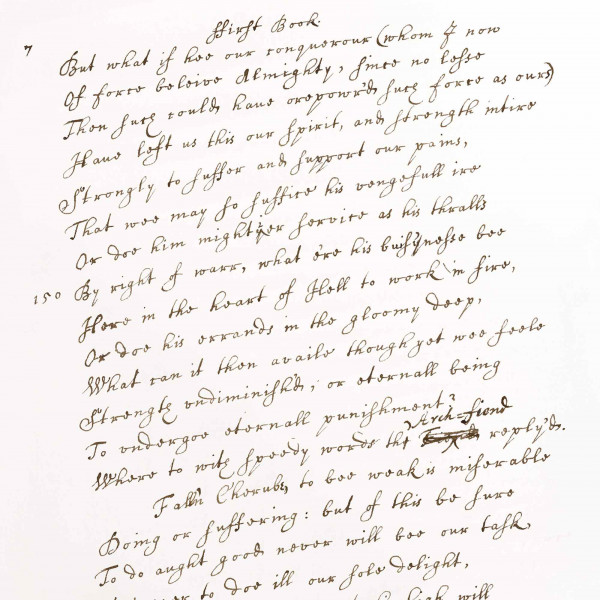 7
ffirst Book
But what if hee our conquerour (whom I now
Of force beleive Almighty, since no lesse
Then such could have orepow'rd such force as ours)
Have left us this our spirit, and strength intire
Strongly to suffer and support our pains,
That wee may so suffice his vengefull ire
Or doe him mightyer service as his thralls
150 By right of warr, what e're his busynesse bee
Here in the heart of Hell to work in fire,
Or doe his errands in the gloomy deep,
What can it then availe though yet wee feele
Strength undiminisht, or eternall being
To undergoe eternall punishment?
Arch-fiend
Where to with speedy words the reply'd.
Fall'n Cherub, to bee weak is miserable
Doing or suffering: but of this be sure
To do aught good never will bee our task
to doe ill our sole delight,
will